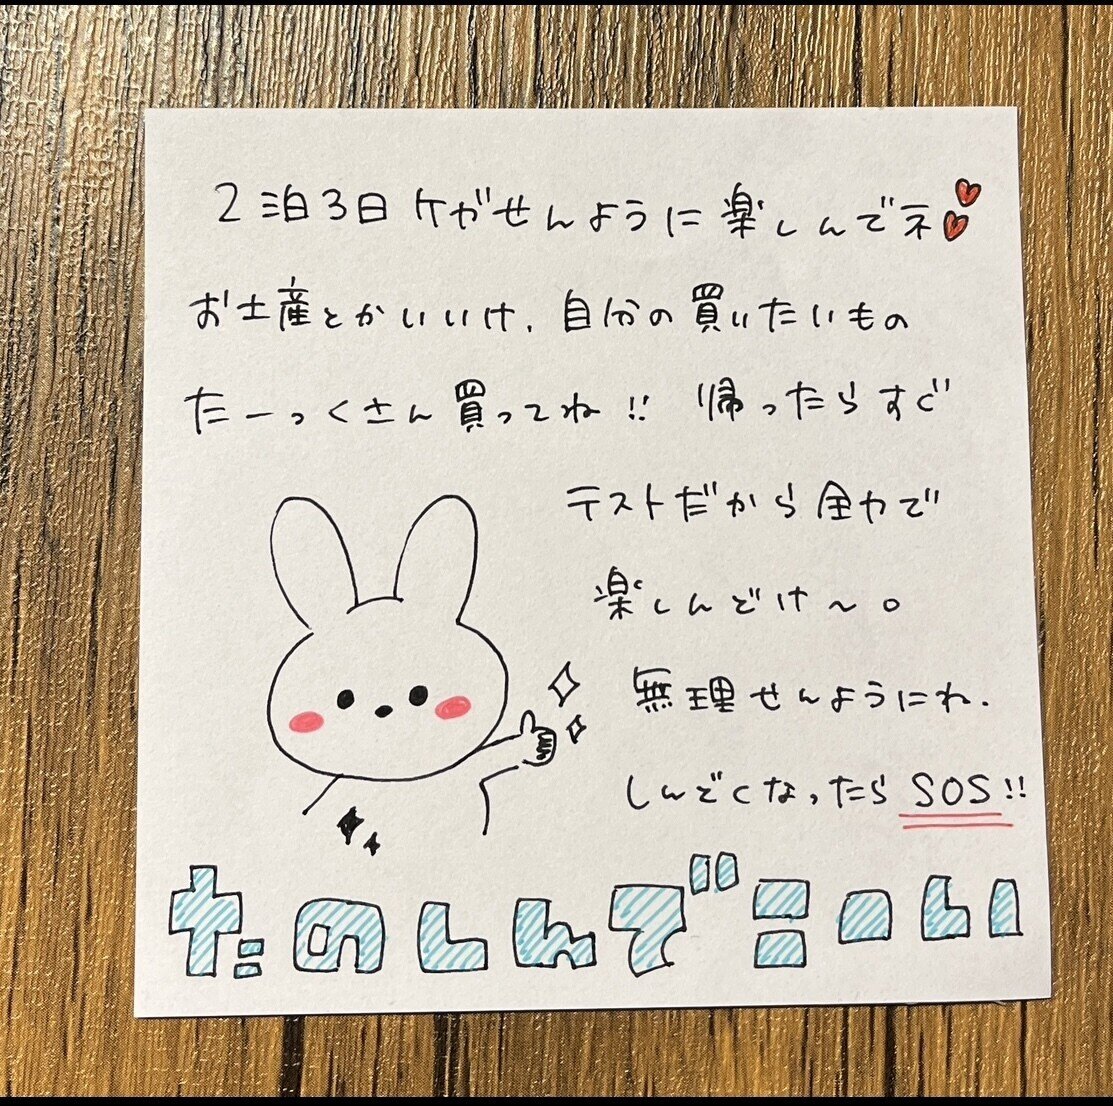 2泊3日ケガせんように楽しんでネ
お土産とかいいけ、自分の買いたいもの
たーっくさん買ってね!! 帰ったらすぐ
テストだから全力で
楽しんどけ〜。
無理せんようにね.
しんどくなったらSOS!!
たのしんでこっい